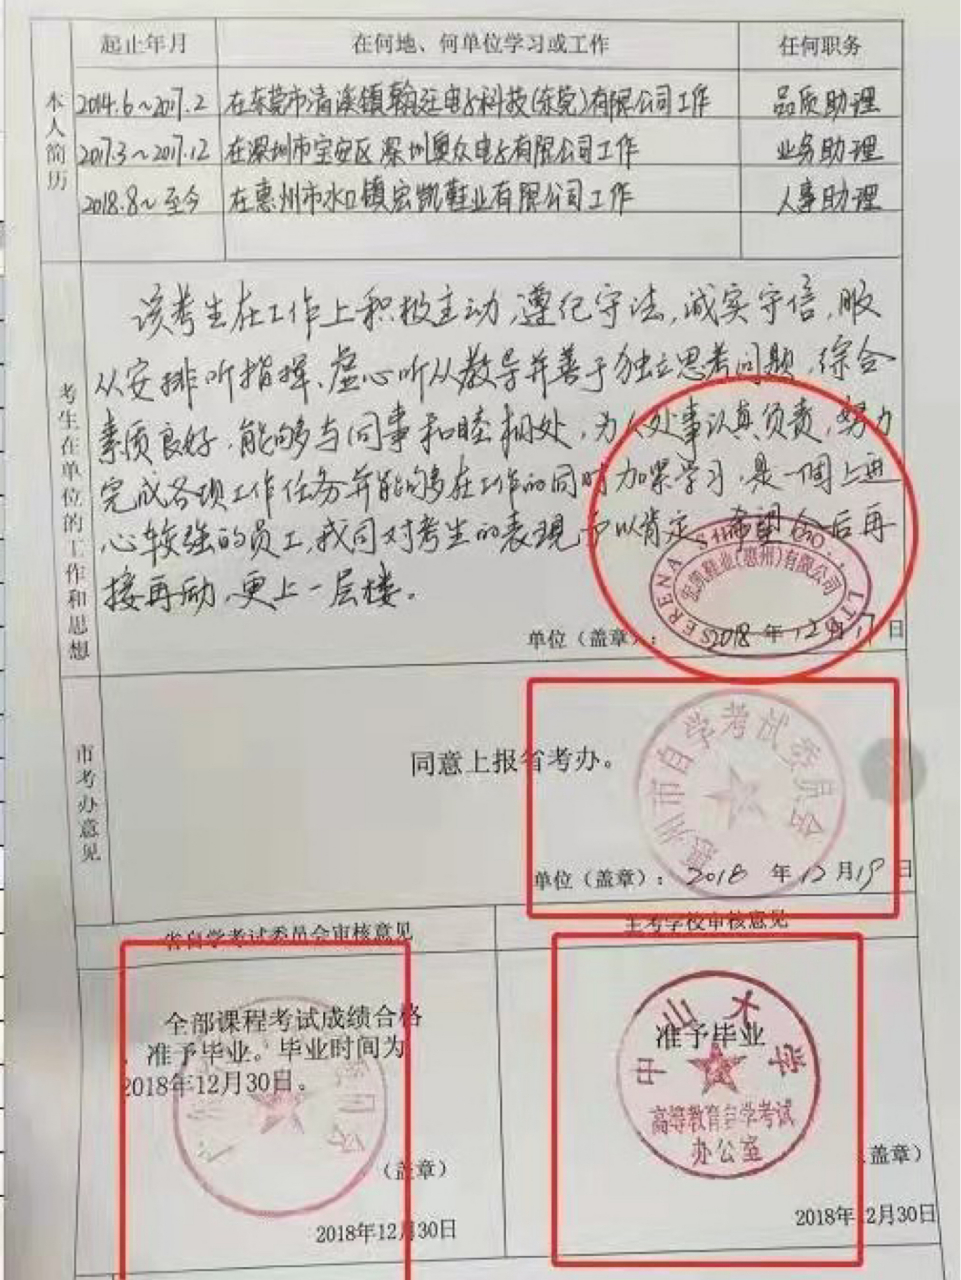 起止年月 在何地、何单位学习或工作 任何职务
本人简历
2014.6~2017.2 在东莞市清溪镇翰廷电子科技(东莞)有限公司工作 品质助理
2017.3~2017.12 在深圳市宝安区深圳奥众电子有限公司工作 业务助理
2018.8~至今 在惠州市水口镇宏凯鞋业有限公司工作 人事助理
考生在单位的工作和思想
该考生在工作上积极主动,遵纪守法,诚实守信,服
从安排听指挥、虚心听从教导并善于独立思考问题,综合
素质良好,能够与同事和睦相处,为人处事认真负责,努力
完成各项工作任务并能够在工作的同时加紧学习,是一個上进
心较强的员工,我司对考生的表现予以肯定,希望今后再
接再励,更上一层楼。
SERENA SHOE CO., LTD
宏凯鞋业(惠州)有限公司
单位(盖章): 2018年12月17日
市考办意见
同意上报省考办。
惠州市自学考试委员会
单位(盖章): 2018 年12月19日
省自学考试委员会审核意见 主考学校审核意见
全部课程考试成绩合格
,准予毕业。毕业时间为
2018年12月30日。
(盖章)
2018年12月30日
准予毕业
中山大学
高等教育自学考试
办公室
盖章)
2018年12月30日